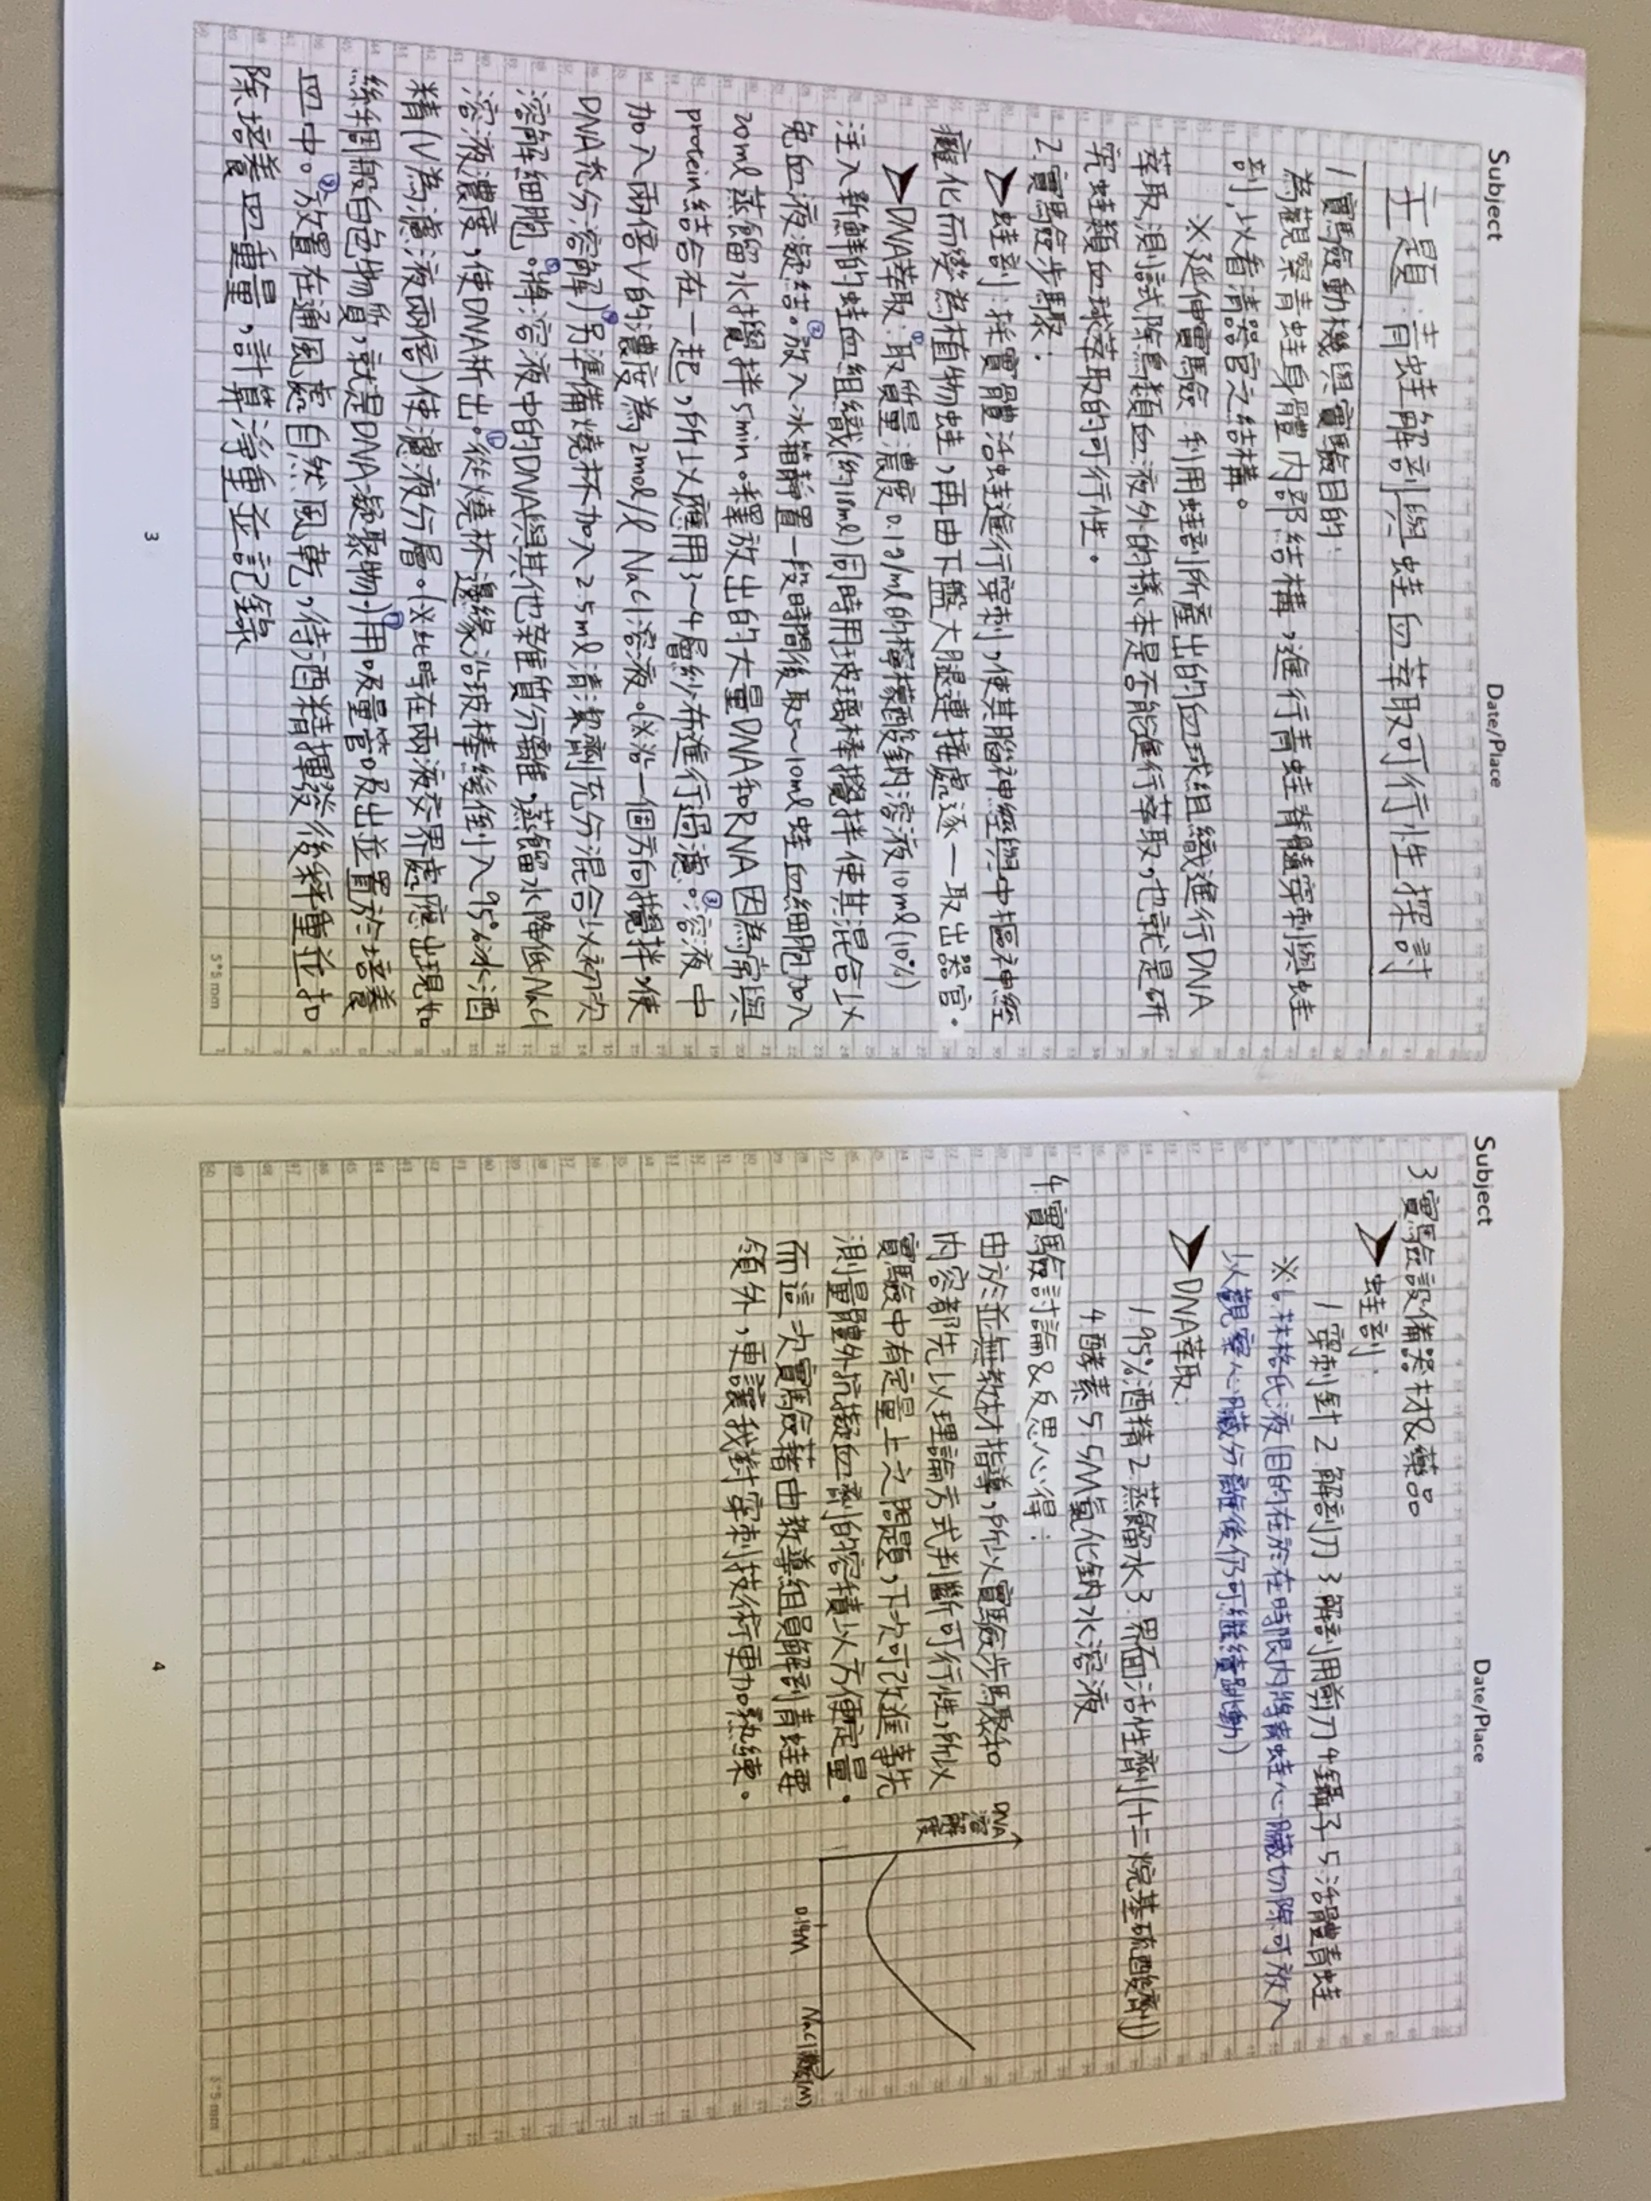 Subject
Date/Place
主題:青蛙解剖與蛙血萃取可行性探討
1.實驗動機與實驗目的:
為觀察青蛙身體內部結構,進行青蛙脊髓穿刺與蛙
剖,以看清器官之結構。
※延伸實驗:利用蛙剖所產出的血球組織進行DNA
萃取,測試除鳥類血液外的樣本是否能進行萃取,也就是研
究蛙類血球萃取的可行性。
2.實驗步驟:
➤蛙剖:採實體活蛙進行穿刺,使其腦神經與中樞神經
癱化而變為植物蛙,再由下盤大腿連接處逐一取出器官。
➤DNA萃取:①取質量濃度0.1g/ml的檸檬酸鈉溶液10ml(10%)
注入新鮮的蛙血組織(約18ml)同時用玻璃棒攪拌使其混合以
免血液凝結。②放入冰箱靜置一段時間後取5~10ml蛙血細胞加入
20ml蒸餾水攪拌5min。釋放出的大量DNA和RNA因為常與
protein結合在一起,所以應用3~4層紗布進行過濾。③溶液中
加入兩倍V的濃度為2mol/l NaCl溶液。(※沿一個方向攪拌,使
DNA充分溶解)④另準備燒杯加入2.5ml清潔劑充分混合以初次
溶解細胞。⑤將溶液中的DNA與其他雜質分離,蒸餾水降低NaCl
溶液濃度,使DNA析出。⑥從燒杯邊緣沿玻棒緩倒入95%冰酒
精(V為濾液兩倍)使濾液分層。(※此時在兩液交界處應出現如
絲綢般白色物質,就是DNA凝聚物)⑦用吸量管吸出並置於培養
皿中。⑧放置在通風處自然風乾,待酒精揮發後秤重並扣
除培養皿重量,計算淨重並記錄
5*5 mm
3
Subject
Date/Place
3.實驗設備器材及藥品
➤蛙剖:
1.穿刺針 2.解剖刀 3.解剖用剪刀 4.鑷子 5.活體青蛙
※6.林格氏液(目的在於在時限內將青蛙心臟切除可放入
以觀察心臟分離後仍可繼續跳動)
➤DNA萃取:
1.95%酒精 2.蒸餾水 3.界面活性劑(十二烷基硫酸劑)
4.酵素 5.5M氯化鈉水溶液
4.實驗討論&反思心得:
由於並無教材指導,所以實驗步驟和
內容都先以理論方式判斷可行性,所以
實驗中有定量上之問題,下次可改進事先
測量體外抗凝血劑的容積以方便定量。
而這次實驗藉由教導組員解剖青蛙要
領外,更讓我對穿刺技術更加熟練。
DNA
溶
解
度
0.14M
NaCl濃度(M)
5*5 mm
4